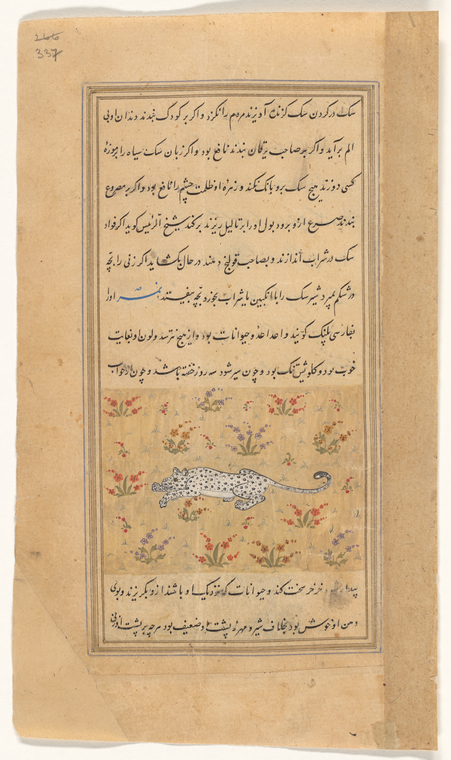 337
سک در کردن سک کزنده آویزند مردم را نکزد و اکر بر کودک بندند دندان او بی
الم برآید و اکر بر صاحب یرقان بندند نافع بود و اکر زبان سک سیاه را بموزه
کسی دوزند هیچ سک برو بانک نکند و زهره او ظلمت چشم را نافع بود و اکر بمصروع
بندند صرع ازو برود بول او را بر ثالیل ریزند برکند شیخ الرئیس کوید اکر فواد
سک در شراب اندازند و بصاحب قولنج دهند در حال بکشاید اکر زنی را بچه
در شکم بمیرد شیر سک را با انکبین یا شراب بخورد بچه بیفتد نمر او را
بفارسی پلنک کویند و اعدا عدو حیوانات بود و از هیچ نترسد و لون بغایت
خوب بود و کلوش تنک بود و چون سیر شود سه روز خفته باشد و چون از خواب
خرخر سخت کند و حیوانات که نزدیک او باشند ازو بکریزند و بوی
دهن او خوش بود بخلاف شیر و مهره پشت او ضعیف بود هر چه بر پشت او زنی